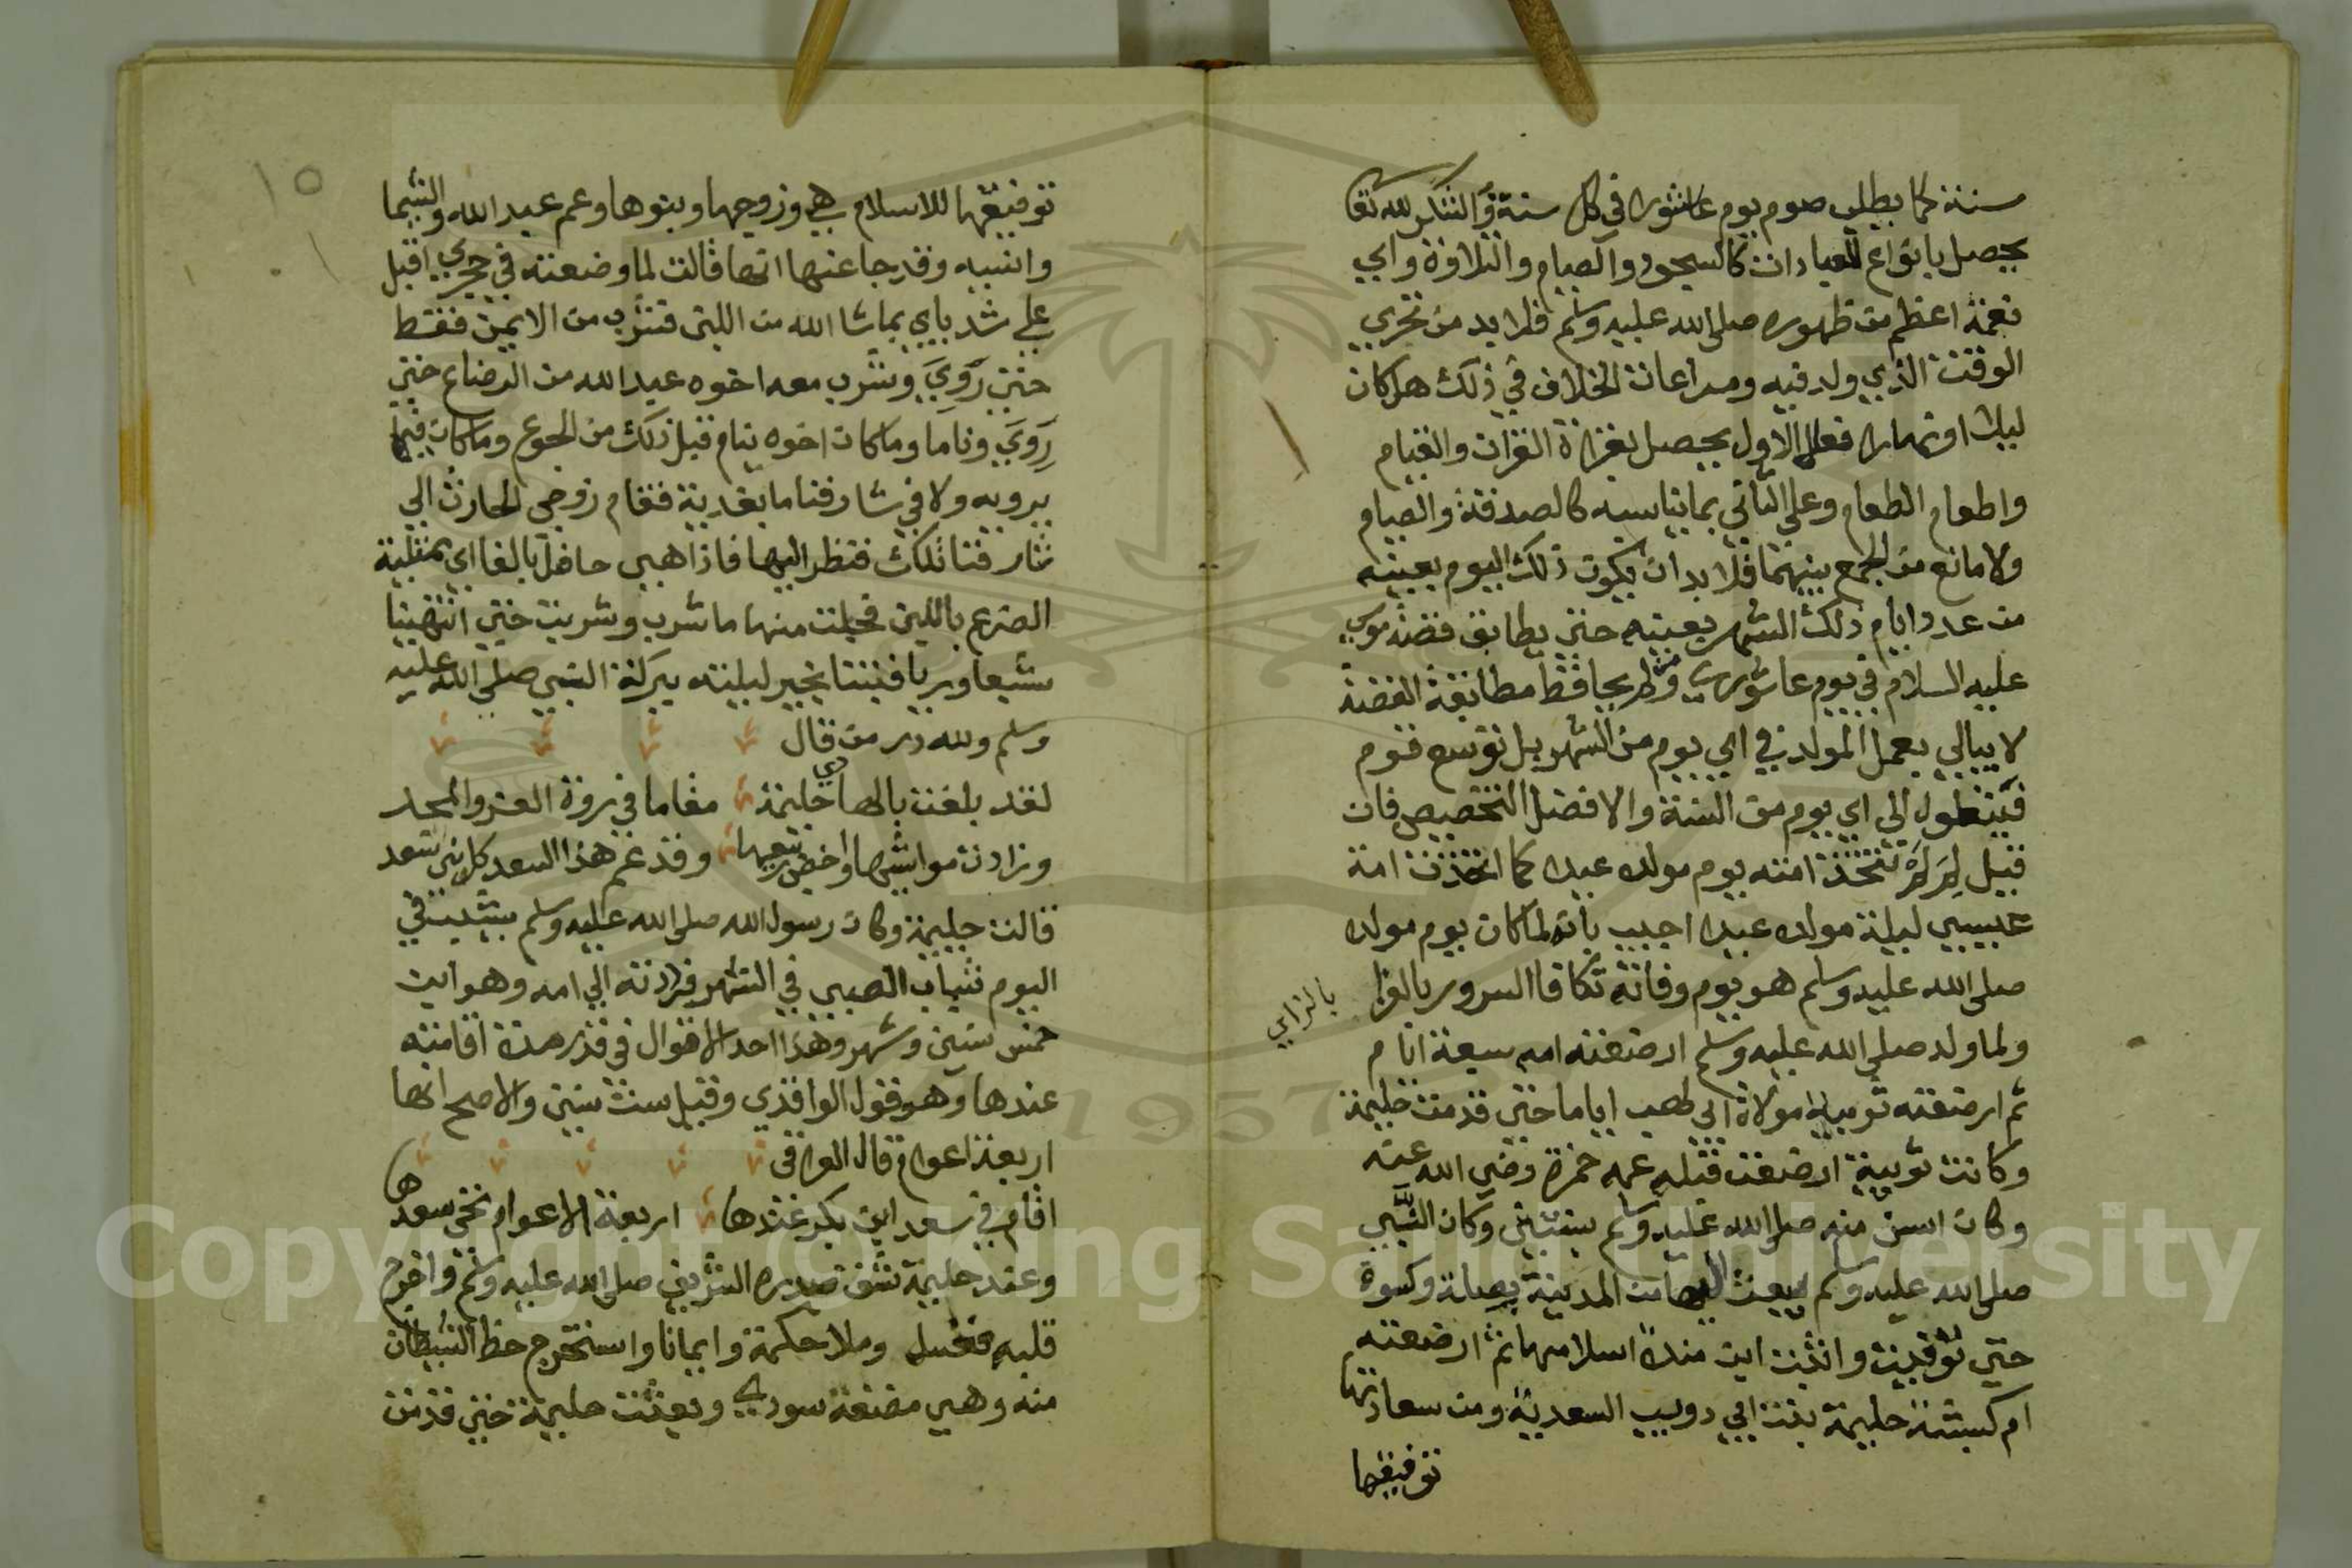 سنة كما يطلب صوم يوم عاشورا في كل سنة والشكر لله تعا
يحصل بانواع العبادات كالسجود والصيام والتلاوة واي
نعمة اعظم من ظهوره صلى الله عليه وسلم فلا بد من تحري
الوقت الذي ولد فيه ومراعات الخلاف في ذلك هل كان
ليلا او نهارا فعلى الاول يحصل بقراة القران والقيام
واطعام الطعام وعلى الثاني بما يناسبه كالصدقة والصيام
ولا مانع من الجمع بينهما فلا بد ان يكون ذلك اليوم بعينه
من عدد ايام ذلك الشهر بعينه حتى يطابق قصة موسى
عليه السلام في يوم عاشورى ومن لم يحافظ مطابقة القصة
لا يبالي بعمل المولد في اي يوم من الشهر بل توسع قوم
فينقلوه الى اي يوم من السنة والافضل التخصيص فان
قيل لم لم تتخذ امته يوم مولده عيدا كما اتخذت امة
عيسى ليلة مولده عيدا اجيب بانه لما كان يوم مولده
صلى الله عليه وسلم هو يوم وفاته تكافا السرور بالرزا
بالزاي
ولما ولد صلى الله عليه وسلم ارضعته امه سبعة ايام
ثم ارضعته ثويبة مولاة ابي لهب اياما حتى قدمت حليمة
وكانت ثويبة ارضعت قبله عمه حمزة رضي الله عنه
وكان اسن منه صلى الله عليه وسلم بسنتين وكان النبي
صلى الله عليه وسلم يبعث اليها من المدينة بصلة وكسوة
حتى توفيت واثبت ابن مندة اسلامها ثم ارضعته
ام كبشة حليمة بنت ابي دويب السعدية ومن سعادتها
توفيقها
١٥
توفيقها للاسلام هي وزوجها وبنوها وعم عبد الله والشيما
وانيسه وقد جا عنها انها قالت لما وضعته في حجري اقبل
على ثدياي بما شا الله من اللبن فشرب من الايمن فقط
حتى روي وشرب معه اخوه عبد الله من الرضاع حتى
روي وناما وما كان اخوه ينام قبل ذلك من الجوع وما كان فيا
يرويه ولا في شارفنا ما يغديه فقام زوجي الحارث الى
شارفنا تلك فنظر اليها فاذا هي حافل بالفا اي ممتلية
الضرع باللبن فحلبت منها ما شرب وشربت حتى انتهينا
شبعا وريا فبتنا بخير ليلته ببركة النبي صلى الله عليه
وسلم ولله در من قال
لقد بلغت بالهادي حليمة مقاما في ذروة العز والمجد
وزادت مواشيها واخضر ربعها وقد عم هذا السعد كل بني سعد
قالت حليمة وكان رسول الله صلى الله عليه وسلم يشب في
اليوم شباب الصبي في الشهر فرادته الى امه وهو ابن
خمس سنين وشهر وهذا احد الاقوال في قدر مدة اقامته
عندها وهو قول الواقدي وقيل ست سنين والاصح انها
اربعة اعوام قال العراقي
اقام في سعد ابن بكر عندها اربعة الاعوام تجني سعدها
وعند حليمة شق صدره الشريف صلى الله عليه وسلم واخرج
قلبه فغسل وملا حكمة وايمانا واستخرج حظ الشيطان
منه وهي مضغة سودى وبعثت حليمة حتى قدمت
Copyright © King Saud University
1957